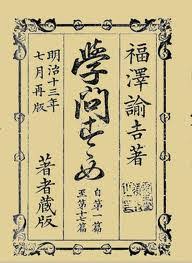 福澤諭吉著
学問のすゝめ
自第一篇
至第十七篇
明治十三年
七月再版
著者蔵版